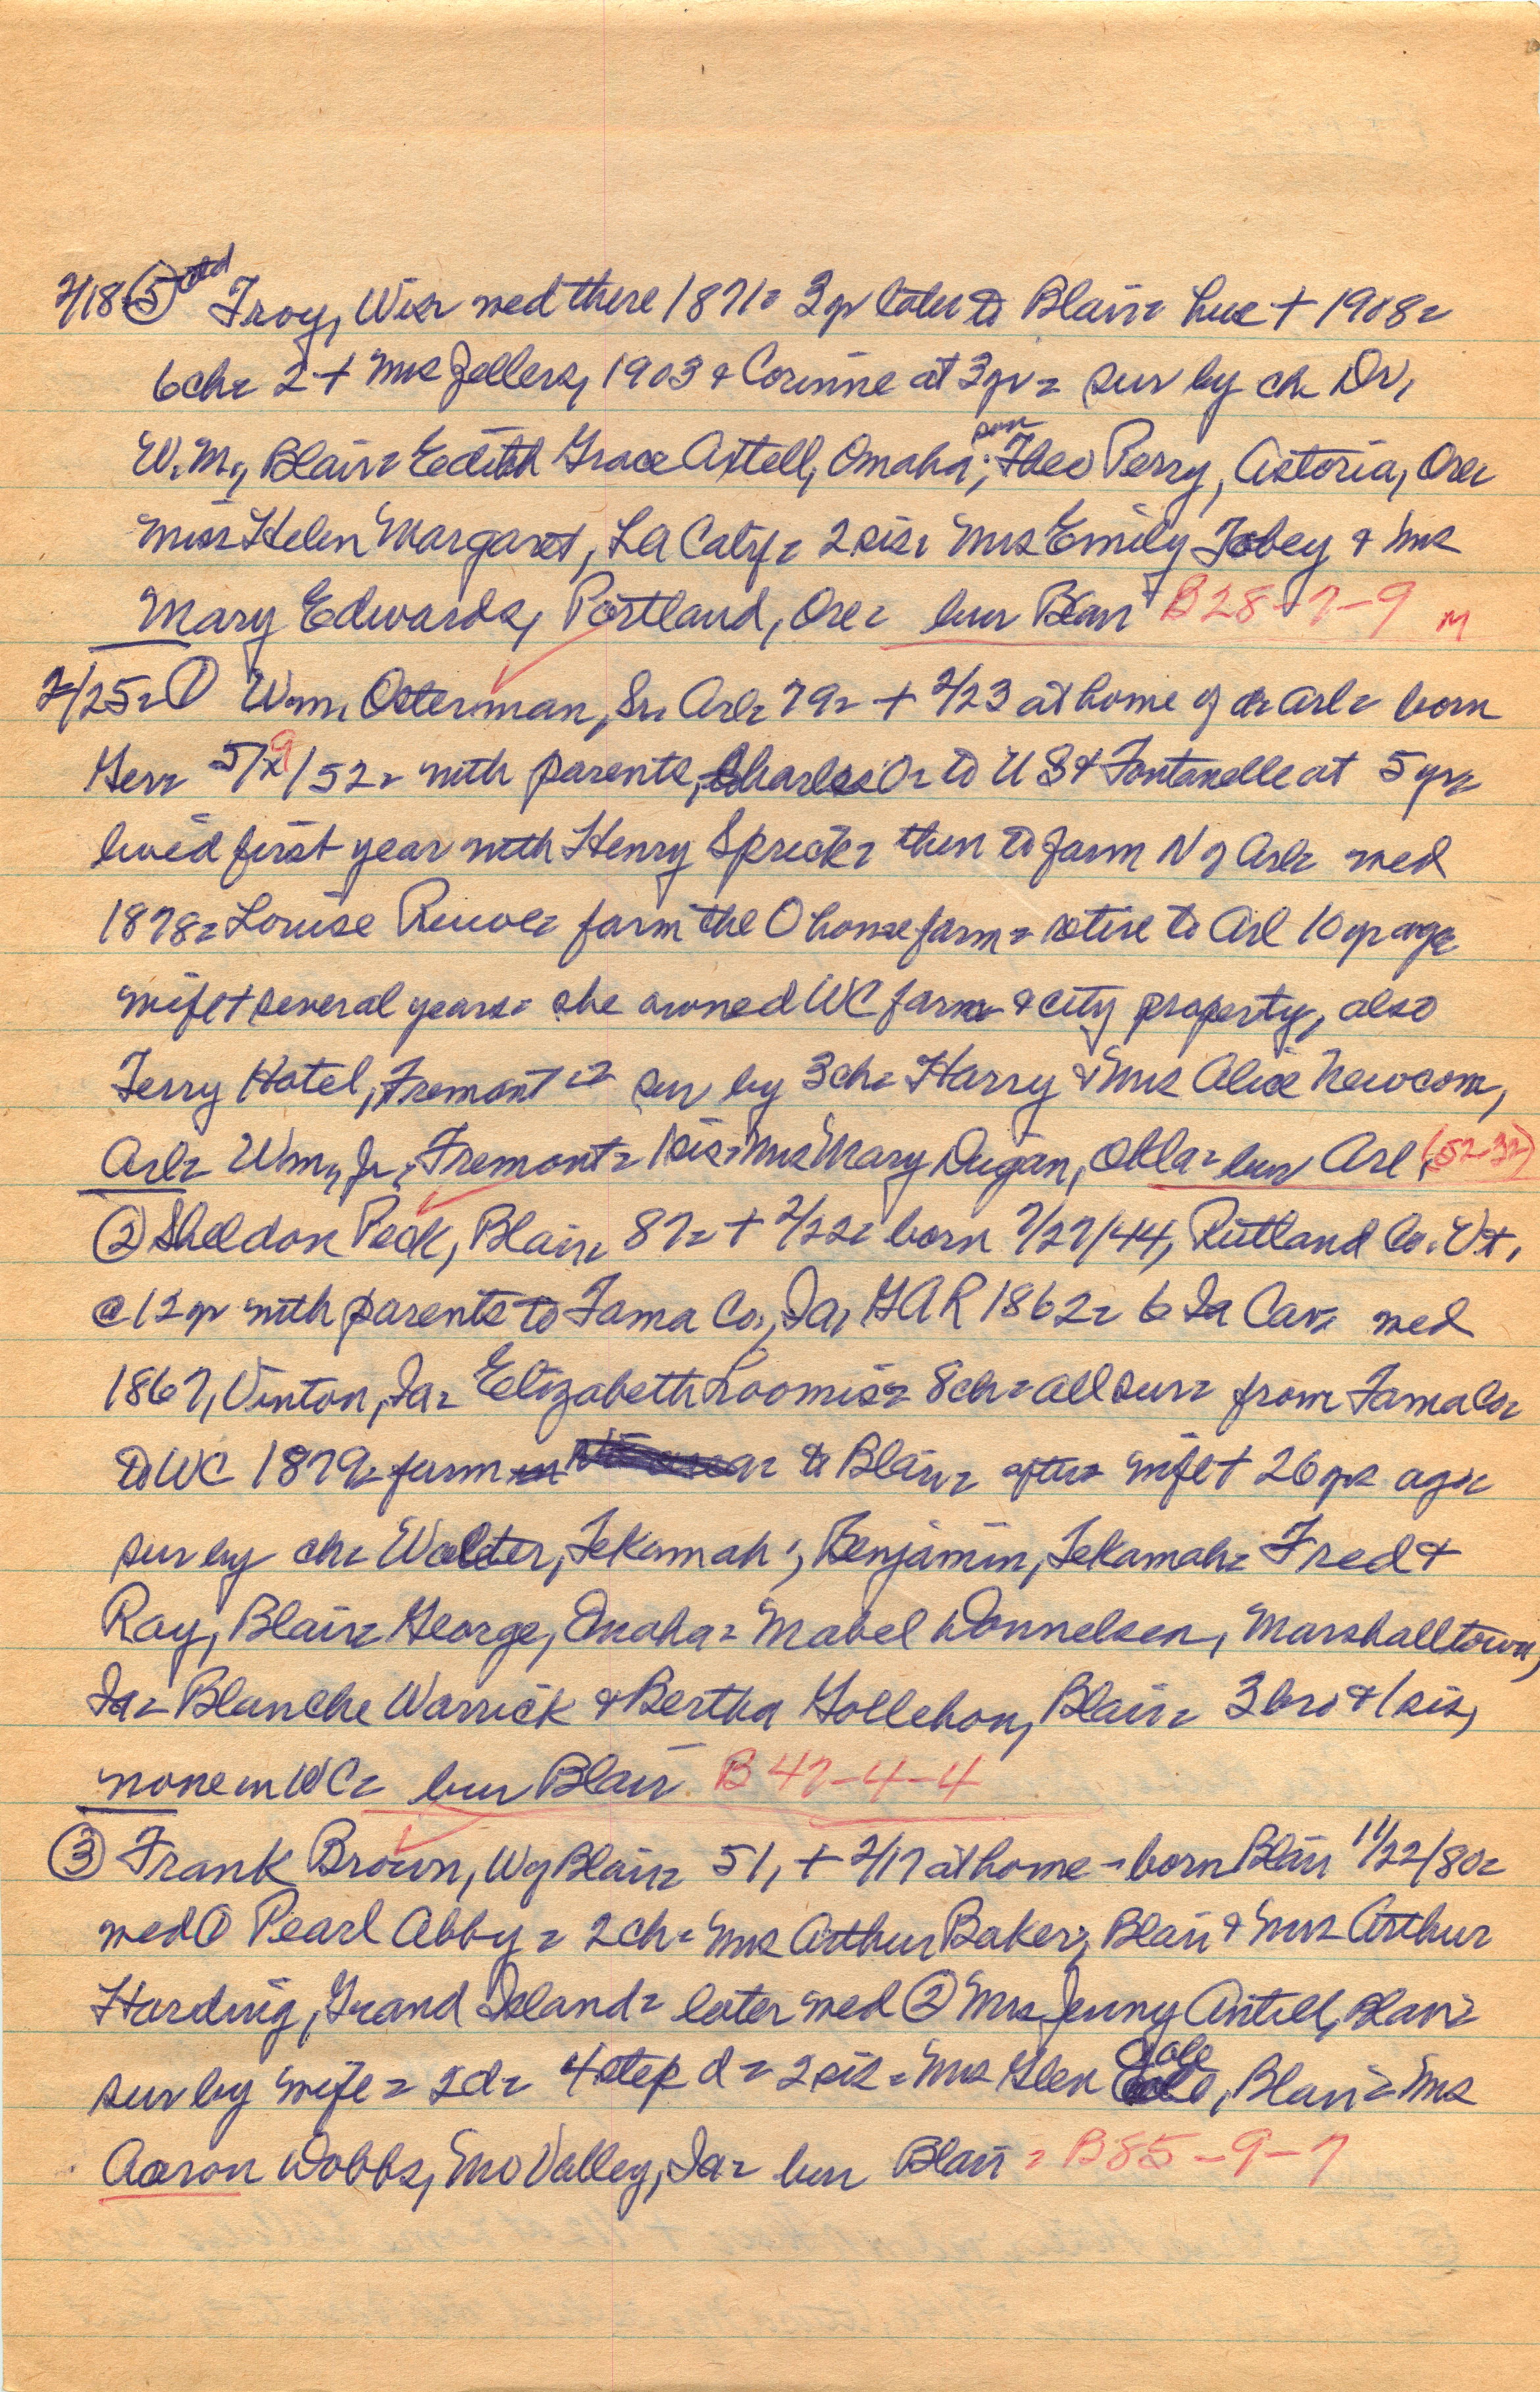 2/18 ⑤ ctd Troy, Wis= wed there 1871= 3 yr later to Blair= hus + 1908=
6 ch= 2 + Mrs Zellers, 1903 & Corinne at 3 yr= sur by ch Dr,
W. M., Blair= Edith Grace Axtell, Omaha; son Theo Perry, Astoria, Ore=
Miss Helen Margaret, LA Calif= 2 sis= Mrs Emily Tobey & Mrs
Mary Edwards, Portland, Ore= bur Blair B28-7-9 M
2/25= ① Wm. Osterman, Sr. Arl= 79= + 2/23 at home of Arl= born
Ger= 5/9/52= with parents, Charles O= to US & Fontanelle at 5 yr=
lived first year with Henry Sprick= then to farm N of Arl= wed
1878= Louise Ruwe= farm the O home farm= retire to Arl 10 yr ago=
wife + several years= she owned WC farm & city property, also
Terry Hotel, Fremont= sur by 3 ch= Harry & Mrs Alice Newcom,
Arl= Wm, Jr, Fremont= 1 sis= Mrs Mary Dugan, Okla= bur Arl, (52-32)
② Sheldon Peck, Blair, 87= + 2/22= born 7/27/44, Rutland Co. Vt,
@ 12 yr with parents to Tama Co, Ia, GAR 1862= 6 Ia Cav= wed
1867, Vinton, Ia= Elizabeth Loomis= 8 ch= all sur= from Tama Co=
to WC 1879= farm to Blair= after wife + 26 yrs ago=
sur by ch= Walter, Tekamah; Benjamin, Tekamah= Fred &
Ray, Blair= George, Omaha= Mabel Donnelsen, Marshalltown,
Ia= Blanche Warrick & Bertha Gollehon, Blair= 3 bro & 1 sis,
none in WC= bur Blair. B 47-4-4
③ Frank Brown, W of Blair= 51, + 2/17 at home - born Blair 11/22/80=
wed ① Pearl Abby= 2 ch= Mrs Arthur Baker, Blair & Mrs Arthur
Harding, Grand Island= later wed ② Mrs Jenny Antill, Blair=
sur by wife= 2 d= 4 step d= 2 sis= Mrs Glen Cole, Blair= Mrs
Aaron Dobbs, Mo Valley, Ia= bur Blair= B85-9-7